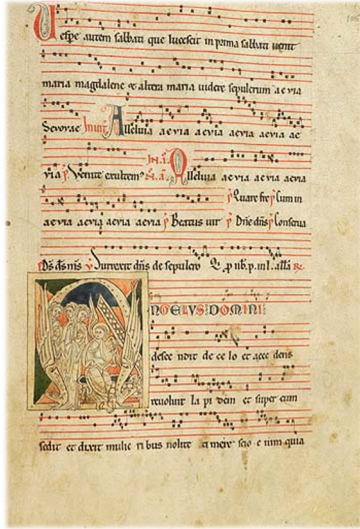 Vespe autem sabbati que lucescit in prima sabbati venit
maria magdalene et altera maria videre sepulcrum aevia
Sevovae Invit Alleluia aevia aevia aevia aevia ae
via p Venite exultem In i N a Alleluia aevia aevia aevia
p Quare fre p Cum in
aevia aevia aevia aevia p Beatus uir p Dne dns p Conserua
Ds ds ms v Surrexit dns de sepulcro
ANGELUS DOMINI
desce ndit de ce lo et acce dens
revoluit la pi dem et super eum
sedit et dixit mulie ribus nolite ti mere scio e nim quia